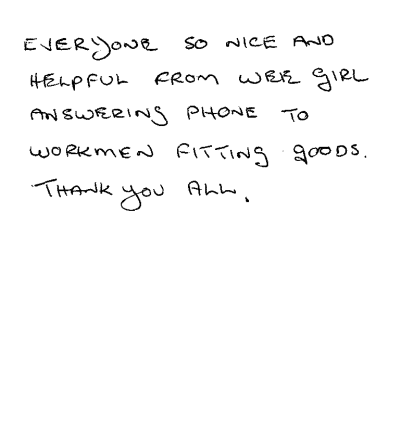 EVERYONE SO NICE AND
HELPFUL FROM WEE GIRL
ANSWERING PHONE TO
WORKMEN FITTING GOODS.
THANK YOU ALL.